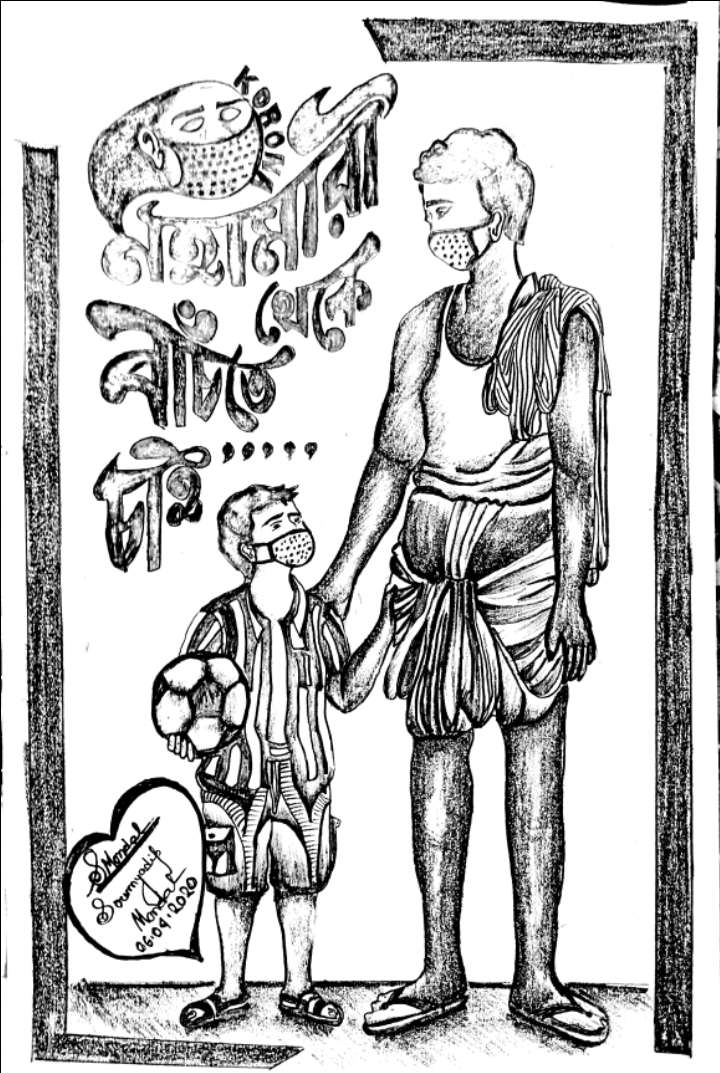 KORONA
মহামারী
থেকে
বাঁচতে
চাই ,,,,,
SMondal
Soumyadip
Mondal
06.04.2020